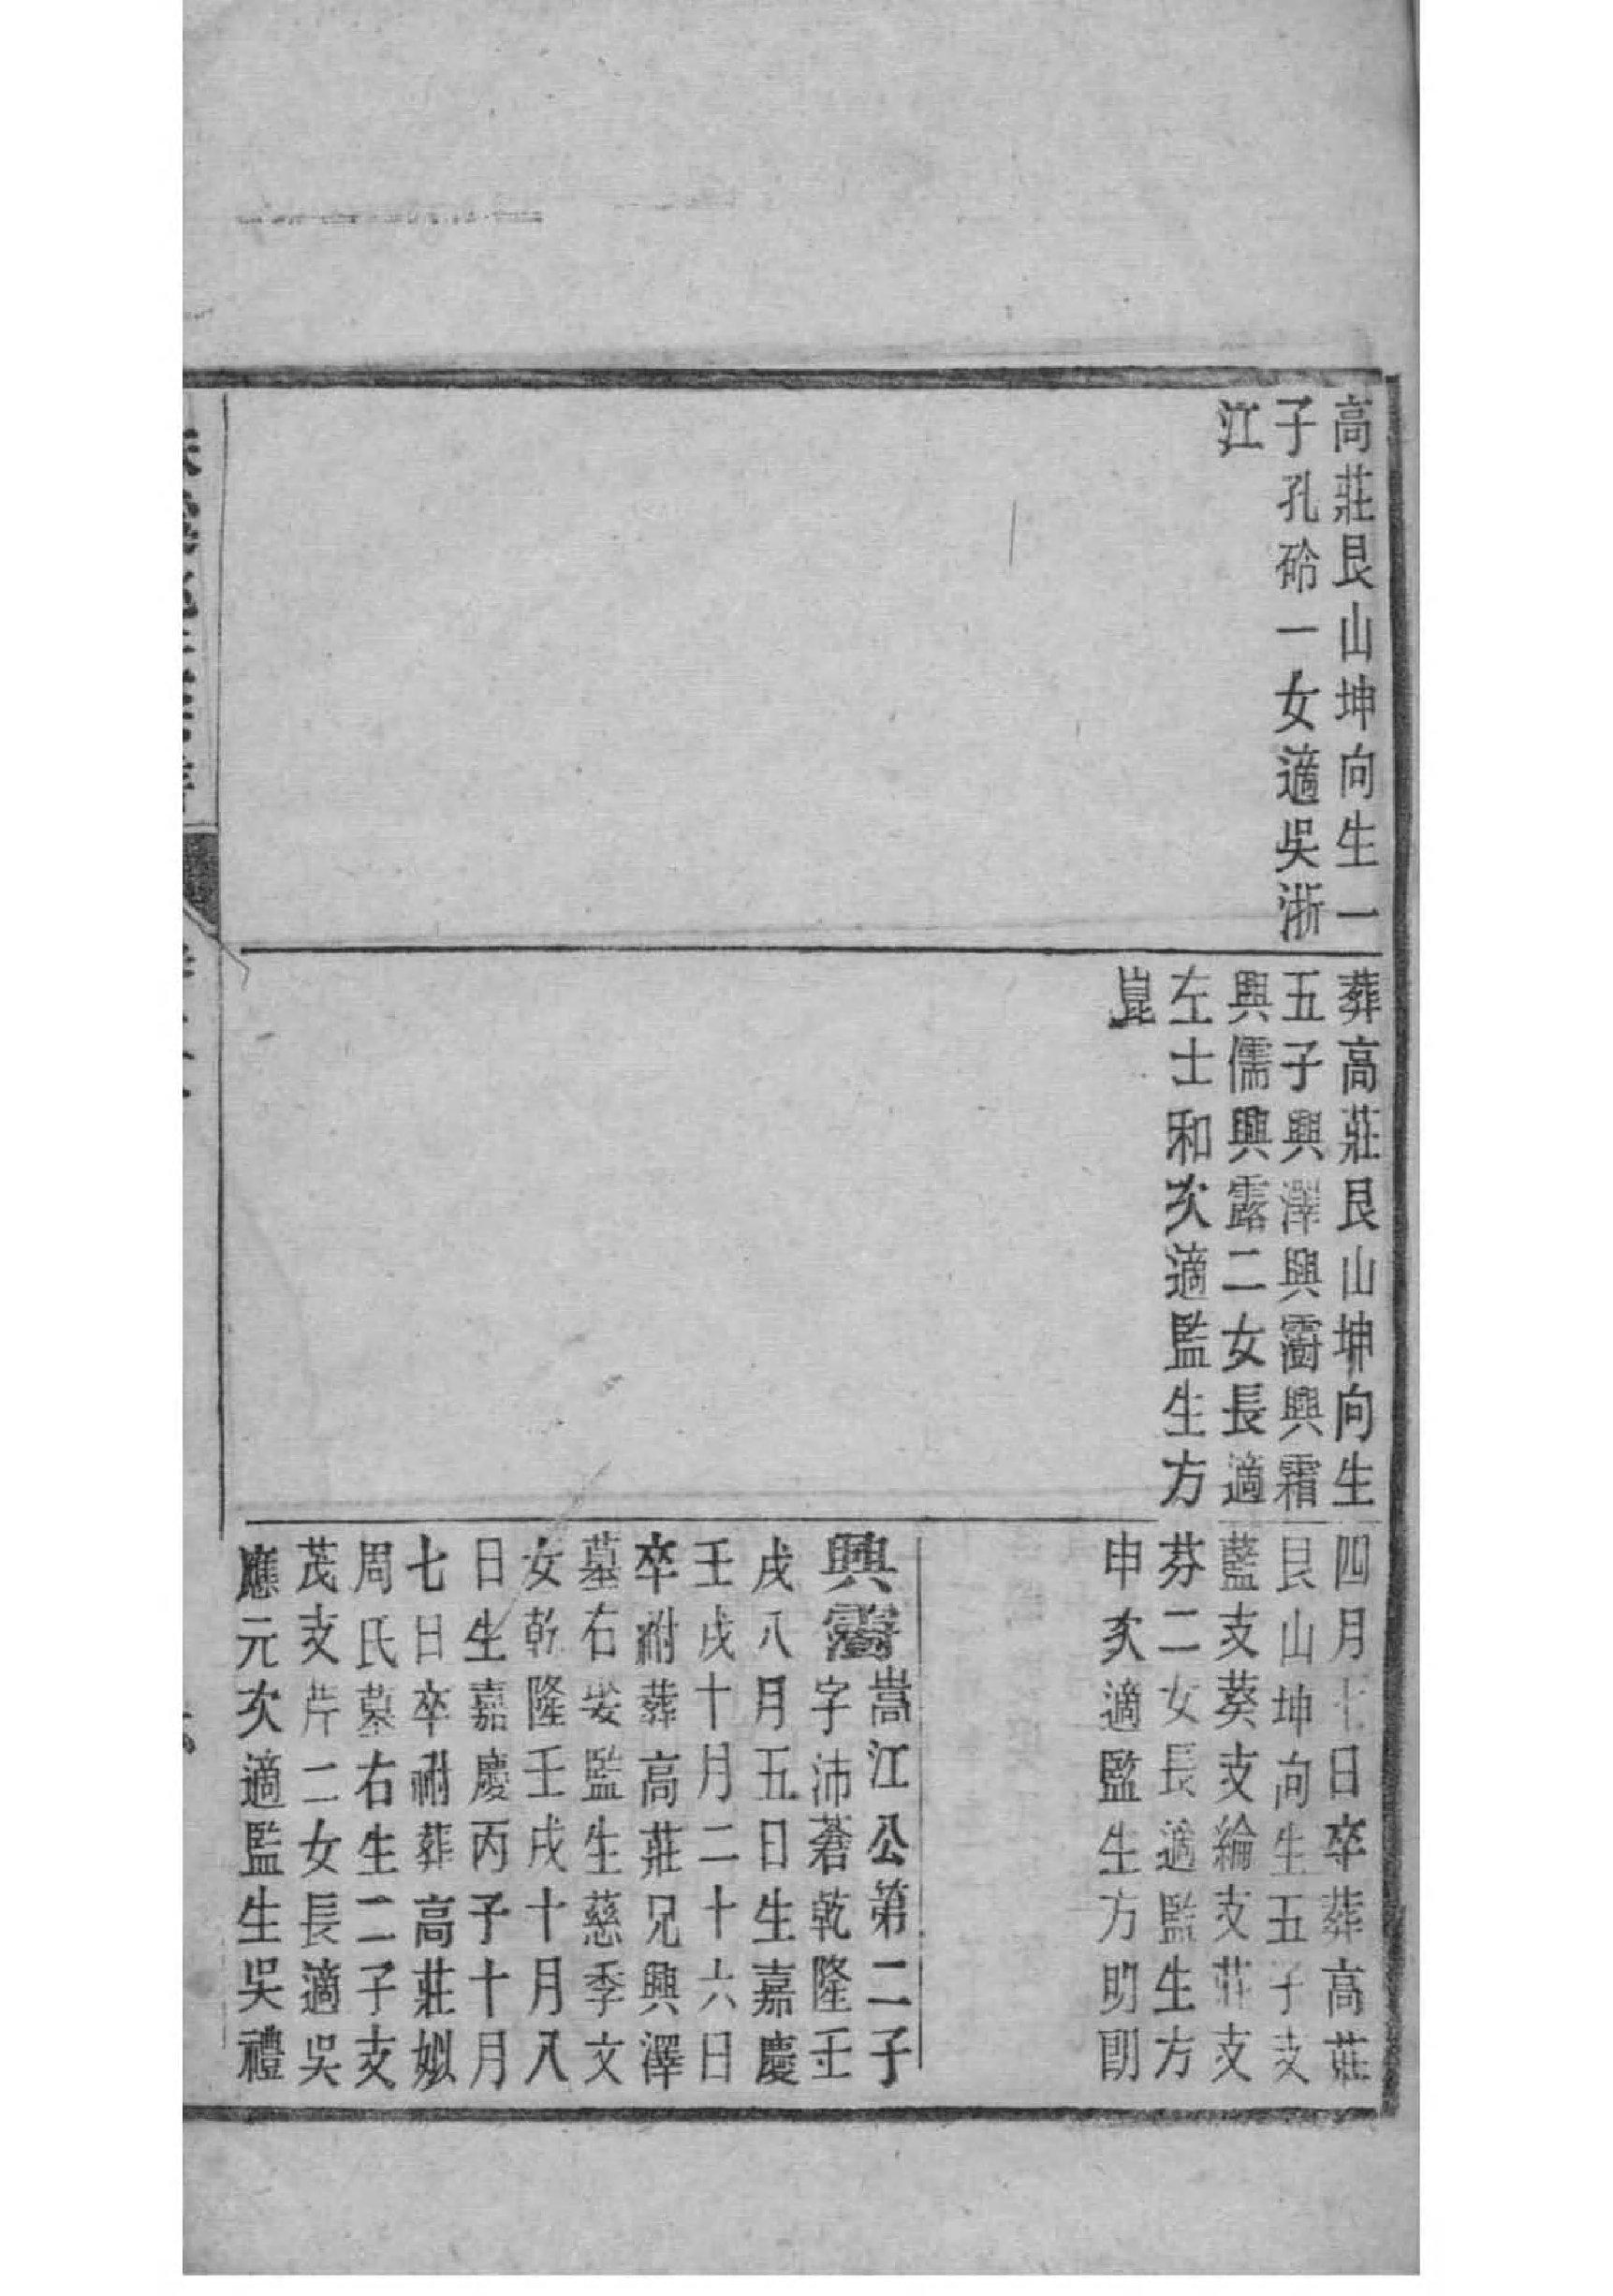 高莊艮山坤向生一
子孔硆一女適吳浙
江
葬高莊艮山坤向生
五子興澤興澍興霜
興儒興露二女長適
左士和次適監生方
崑
四月十日卒葬高莊
艮山坤向生五子支
藍支葵支綸支莊支
芬二女長適監生方
申次適監生方明剛
興澍嵩江公第二子
字沛蒼乾隆壬
戌八月五日生嘉慶
壬戌十月二十六日
卒祔葬高莊兄興澤
墓右娶監生慈季文
女乾隆壬戌十月八
日生嘉慶丙子十月
七日卒祔葬高莊姒
周氏墓右生二子支
茂支芹二女長適吳
應元次適監生吳禮